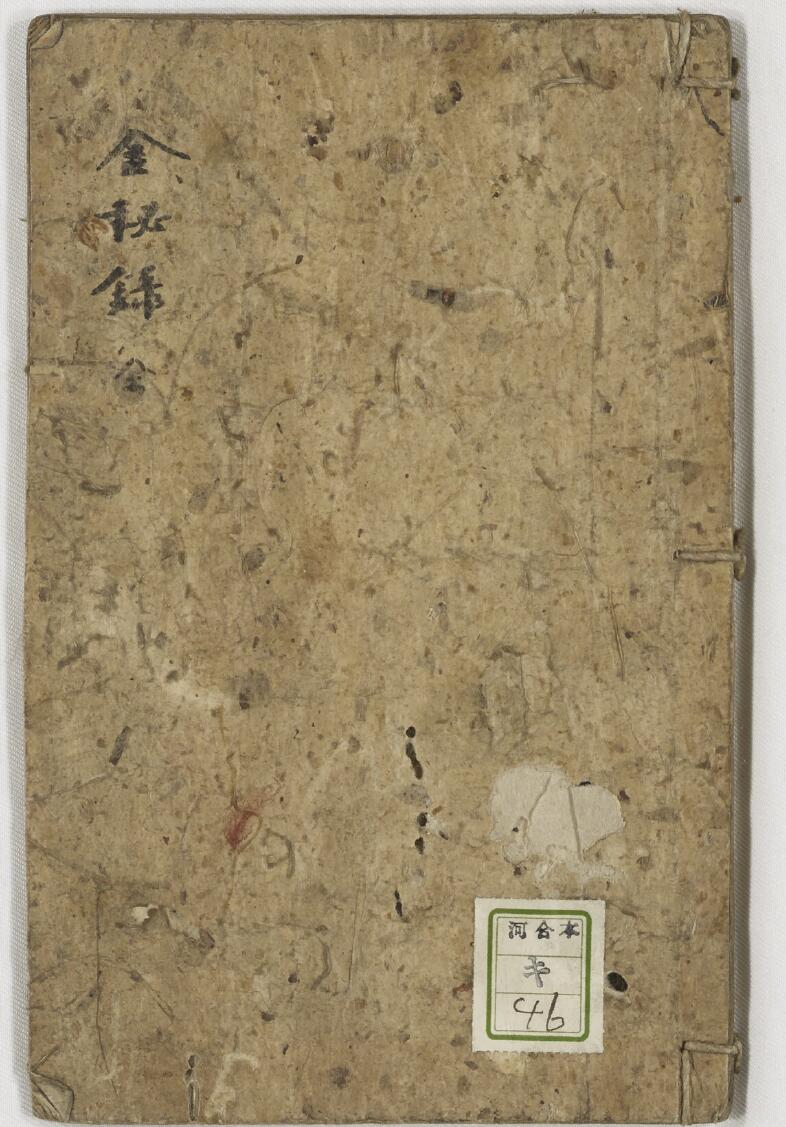 金秘録 全
河合本
キ
46